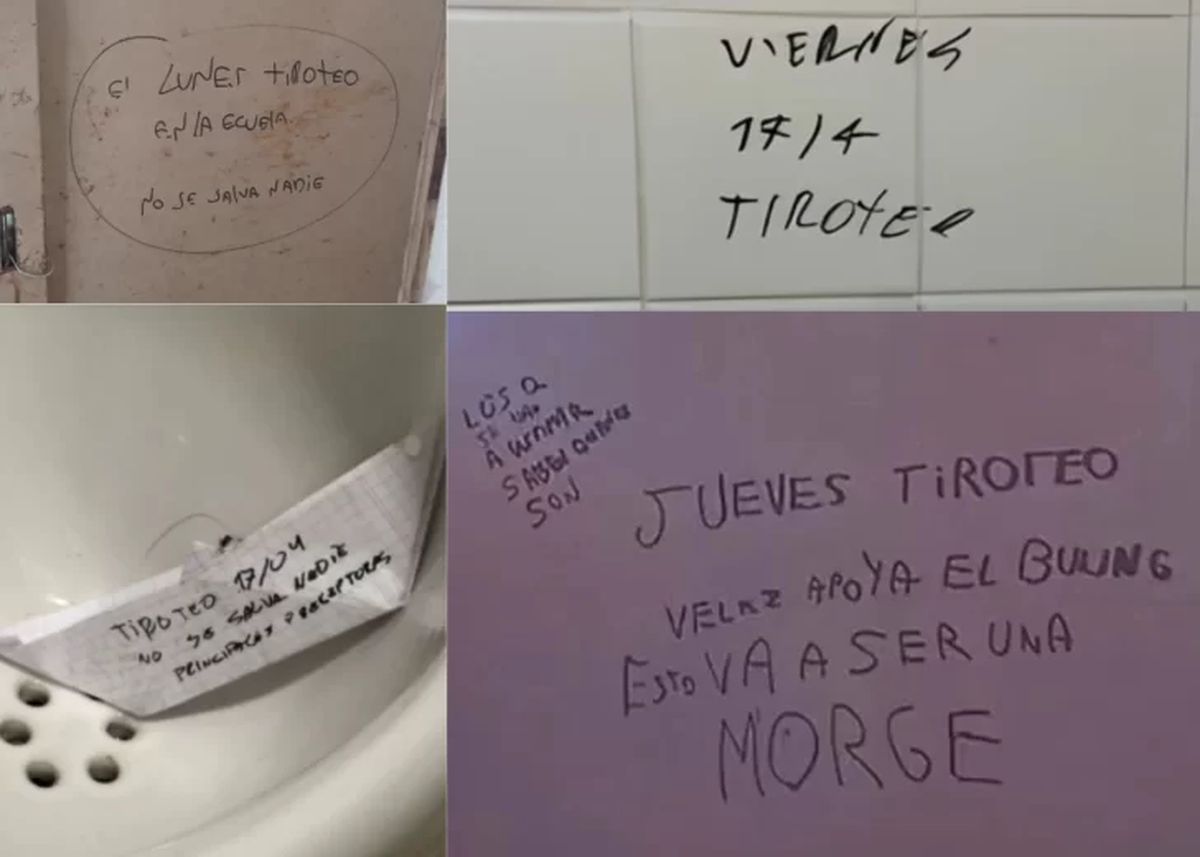 El LUNES TIROTEO
EN LA ECUELA
NO SE SALVA NADIE
VIERNES
17/4
TIROTEO
TIROTEO 17/04
NO SE SALVA NADIE
PRINCIPALES PRECEPTORES
LOS Q
SE VAN
A
SABEN QUIENES
SON
JUEVES TIROTEO
VELAZ APOYA EL BULING
ESTO VA A SER UNA
MORGE